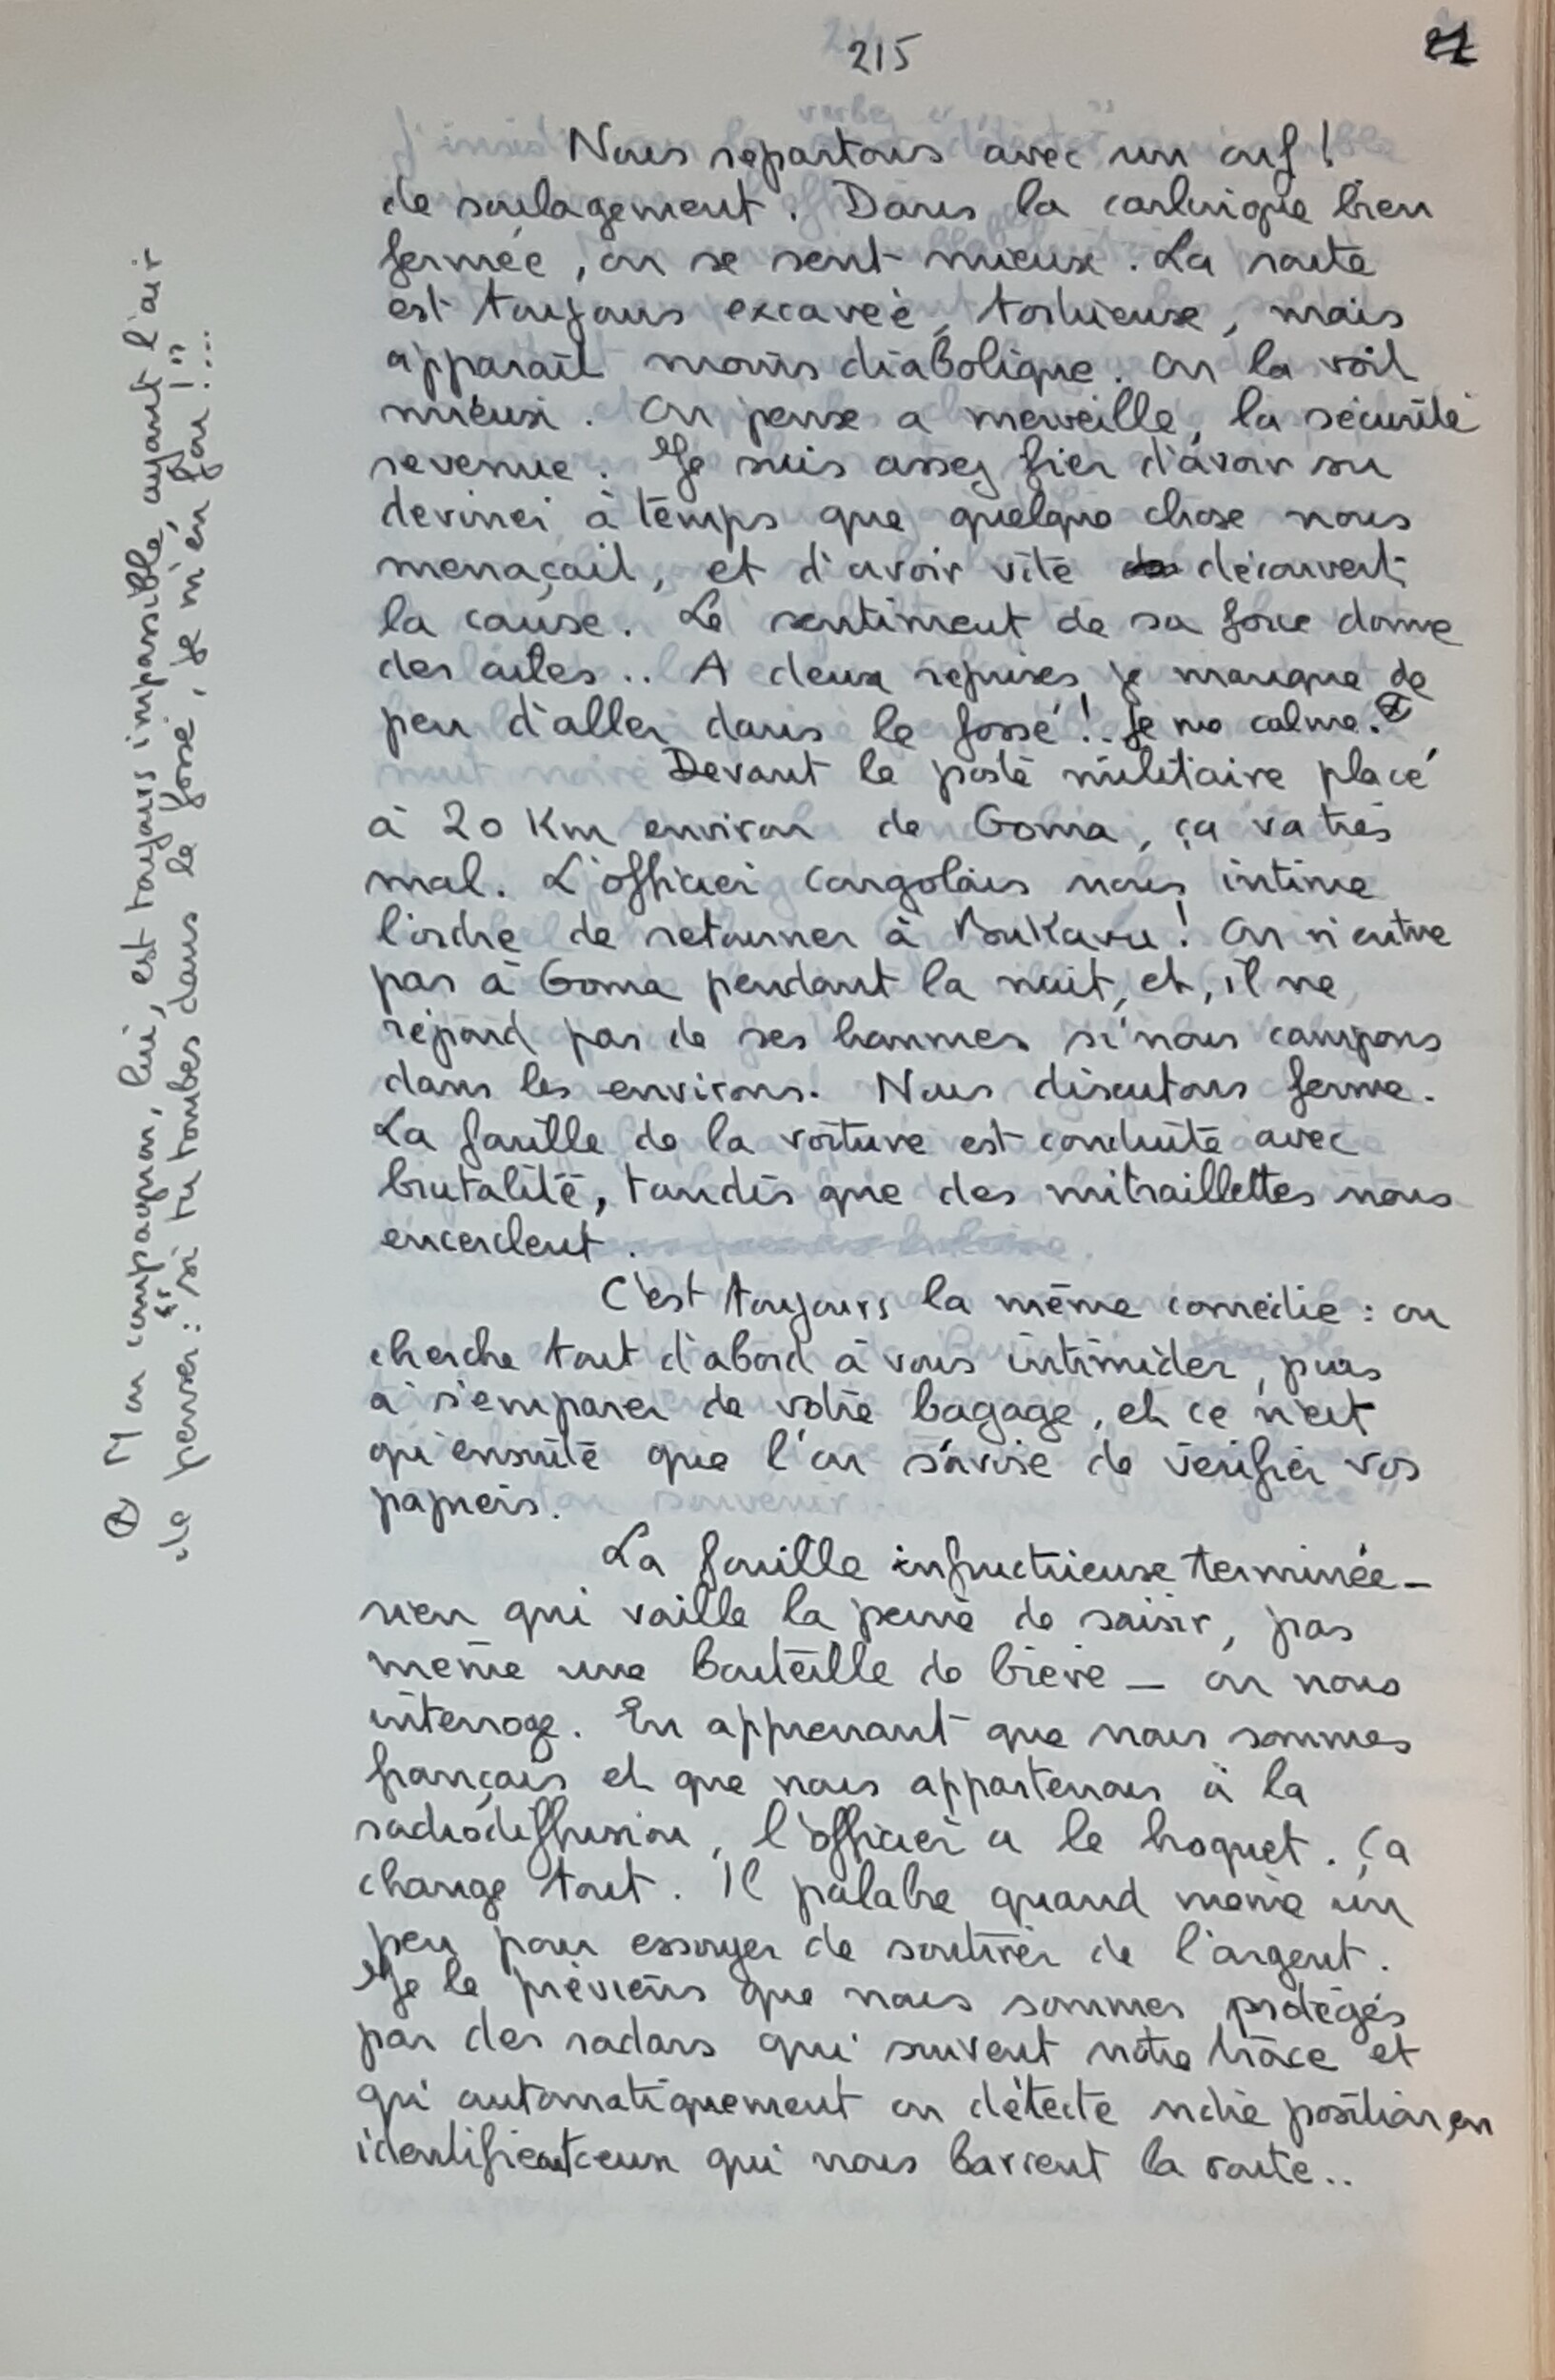 215
Nous repartons avec un ouf !
de soulagement. Dans la carlingue bien
fermée, on se sent mieux. La route
est toujours excavée, tortueuse, mais
apparaît moins diabolique. On la voit
mieux. On pense a merveille, la sécurité
revenue. Je suis assez fier d'avoir su
deviner à temps que quelque chose nous
menaçait, et d'avoir vite découvert
la cause. Le sentiment de sa force donne
des ailes.. A deux reprises je manque de
peu d'aller dans le fossé !.. Je me calme. ⊗
Devant le poste militaire placé
à 20 Km environ de Goma, ça va très
mal. L'officier Congolais nous intime
l'ordre de retourner à Bukavu ! On n'entre
pas à Goma pendant la nuit, et, il ne
répond pas de ses hommes si nous campons
dans les environs. Nous discutons ferme.
La fouille de la voiture est conduite avec
brutalité, tandis que des mitraillettes nous
encerclent.
C'est toujours la même comédie : on
cherche tout d'abord à vous intimider, puis
à s'emparer de votre bagage, et ce n'est
qu'ensuite que l'on s'avise de vérifier vos
papiers.
La fouille infructueuse terminée —
rien qui vaille la peine de saisir, pas
même une bouteille de bière — on nous
interroge. En apprenant que nous sommes
français et que nous appartenons à la
radiodiffusion, l'officier a le hoquet. Ça
change tout. Il palabre quand même un
peu pour essayer de soutirer de l'argent.
Je le préviens que nous sommes protégés
par des radars qui suivent notre trace et
qui automatiquement on détecte notre position, en
identifiant ceux qui nous barrent la route..
⊗ Mon compagnon, lui, est toujours impassible, ayant l'air
de penser : "si tu tombes dans le fossé, je m'en fou !"...